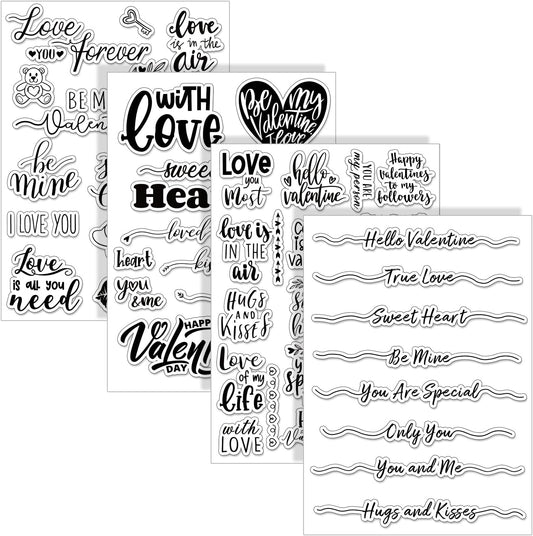 Love
YOU
forever
love
is in the
air
BE M
Valen
be
mine
I LOVE YOU
Love
is all you
need
with
love
Be my
Valentine
I love
sweet
Hea
loved
heart
kis
you
& me
HAPP
Valentin
DAY
Love
you
Most
hello
valentine
YOU ARE
my person
Happy
valentines
to my
followers
love is
IN THE
air
HUGS
AND
KISSES
Love
of my
life
with
LOVE
Hello Valentine
True Love
Sweet Heart
Be Mine
You Are Special
Only You
You and Me
Hugs and Kisses